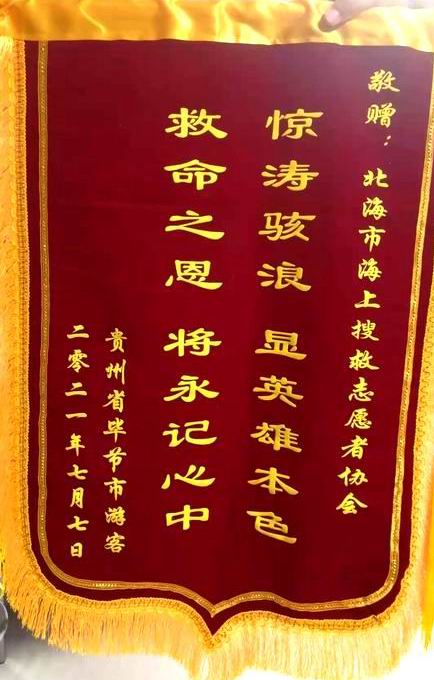 敬赠：北海市海上搜救志愿者协会
惊涛骇浪 显英雄本色
救命之恩 将永记心中
贵州省毕节市游客
二零二一年七月七日